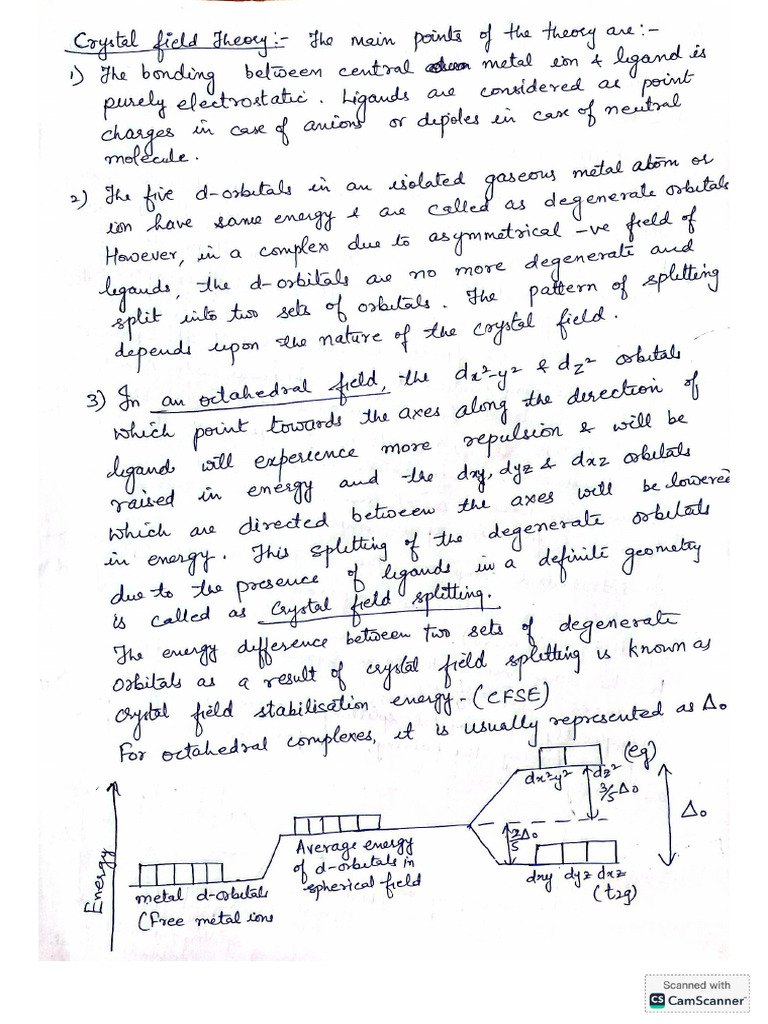 Crystal field Theory:- The main points of the theory are:-
1) The bonding between central metal ion & ligand is
purely electrostatic. Ligands are considered as point
charges in case of anions or dipoles in case of neutral
molecule.
2) The five d-orbitals in an isolated gaseous metal atom or
ion have same energy & are called as degenerate orbitals
However, in a complex due to asymmetrical -ve field of
ligands, the d-orbitals are no more degenerate and
split into two sets of orbitals. The pattern of splitting
depends upon the nature of the crystal field.
3) In an octahedral field, the dx²-y² & dz² orbitals
which point towards the axes along the direction of
ligand will experience more repulsion & will be
raised in energy and the dxy, dyz & dxz orbitals
which are directed between the axes will be lowered
in energy. This splitting of the degenerate orbitals
due to the presence of ligands in a definite geometry
is called as Crystal field splitting.
The energy difference between two sets of degenerate
orbitals as a result of crystal field splitting is known as
crystal field stabilisation energy-(CFSE)
For octahedral complexes, it is usually represented as Δo
Energy
metal d-orbitals
(Free metal ions
Average energy
of d-orbitals in
spherical field
dx²y² dz² (eg)
3/5 Δo
2/5 Δo
Δo
dxy dyz dxz
(t2g)
Scanned with
CS CamScanner